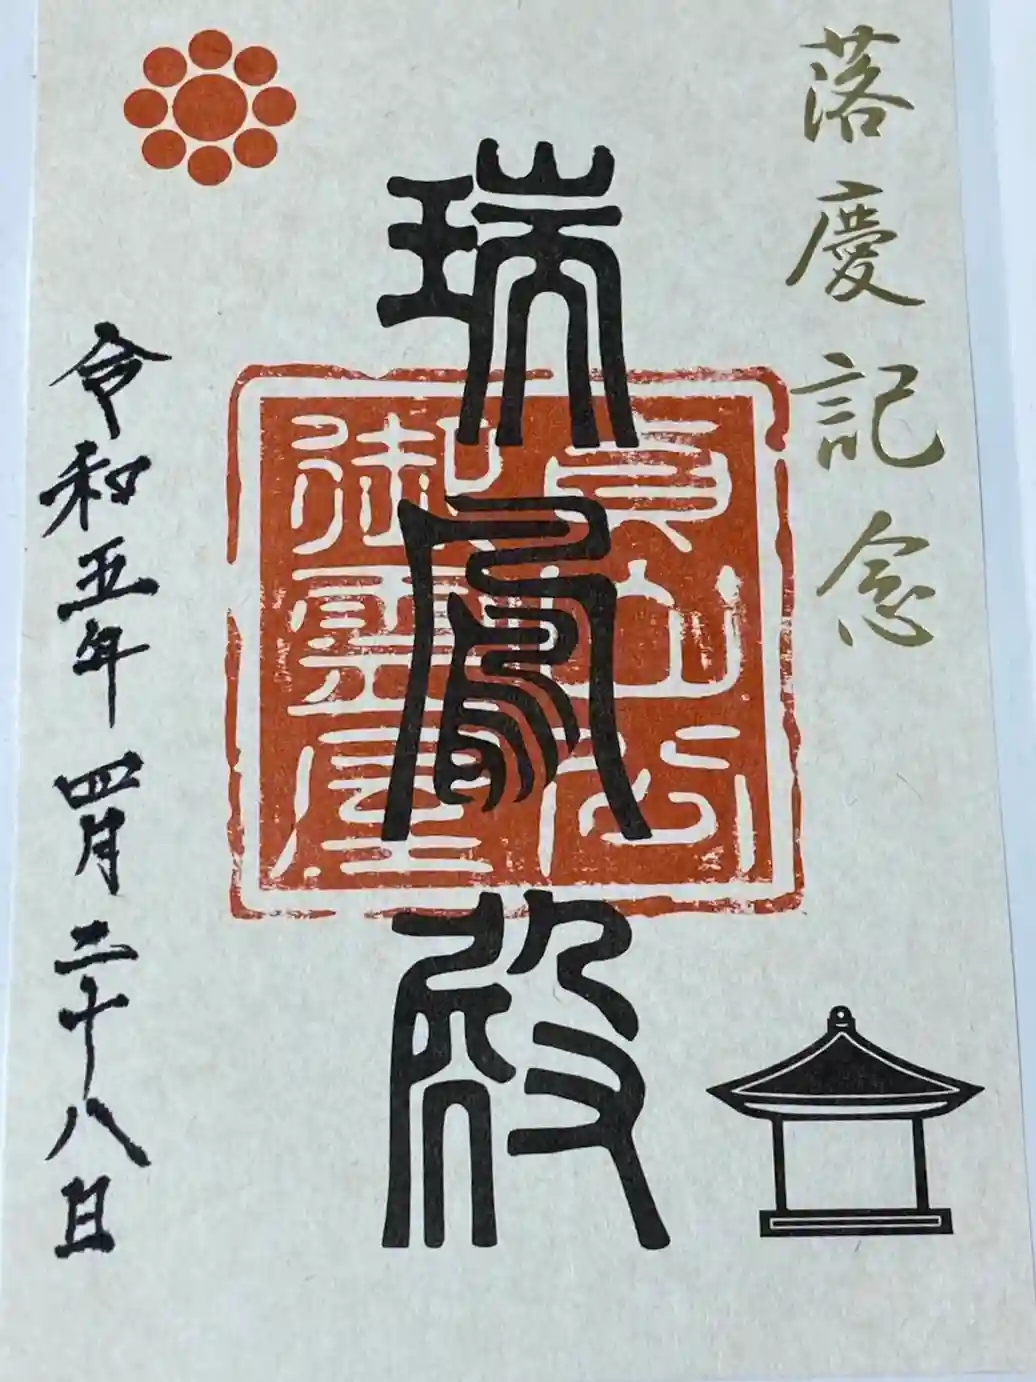 落慶記念
瑞鳳殿
貞山公
御霊屋
令和五年四月二十八日